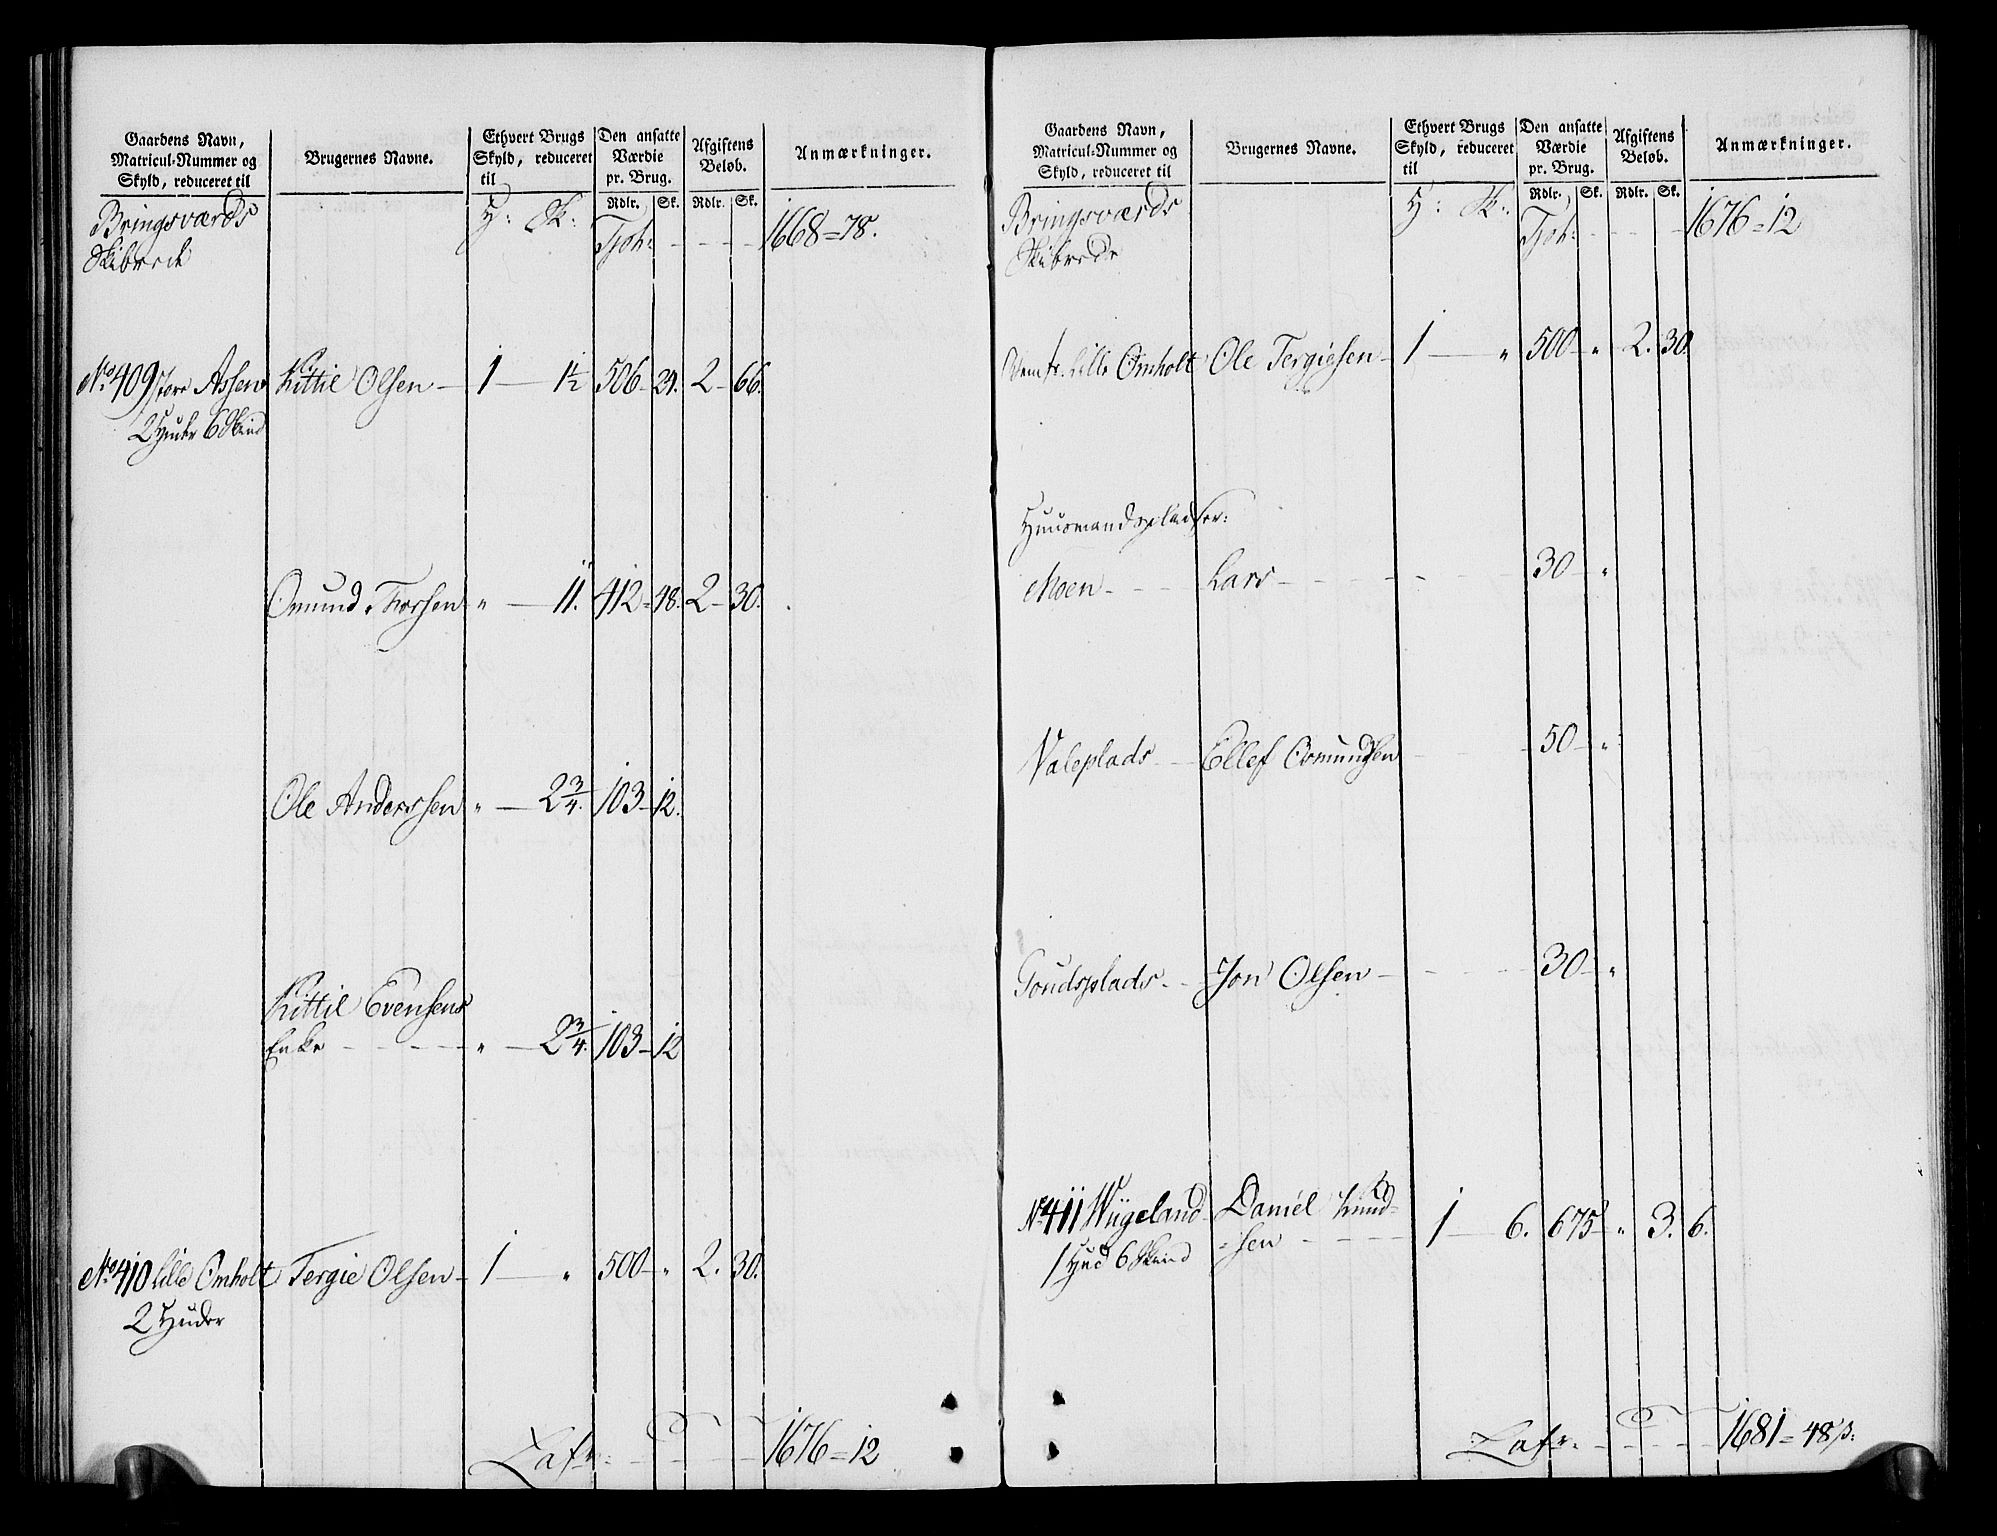 Gaardens Navn,
Matricul-Nummer og
Skyld, reduceret til
Brugernes Navne.
Ethvert Brugs
Skyld, reduceret
til
Den ansatte
Værdie
pr. Brug.
Afgiftens
Beløb.
Anmærkninger.
Rdlr. Sk. Rdlr. Sk.
Bringsværds H: Sk: Tsph: - - - - 1668=78.
Skibrede
No 409 store Assen Kittil Olsen - 1 - 1½ 506-24. 2-66.
2 Huder 6 Skind
Omund Torsen " - 11. 412=48. 2-30.
Ole Anderssen " - 2¾. 103-12.
Kittil Evensens
Enke - - - - " - 2¾. 103-12
No 410 Lille Omholt Tergie Olsen - 1 - " 500-" 2. 30.
2 Huder
Lafr: - - - - 1676=12
Gaardens Navn,
Matricul-Nummer og
Skyld, reduceret til
Brugernes Navne.
Ethvert Brugs
Skyld, reduceret
til
Den ansatte
Værdie
pr. Brug.
Afgiftens
Beløb.
Anmærkninger.
Rdlr. Sk. Rdlr. Sk.
Bringsværds H: Sk: Tsph: - - - - 1676=12
Skibrede
Lille Omholt Ole Tergiesen - 1 - " 500-" 2. 30.
Huusmandspladser:
Moen - - - Lars - - - - - - 30 - "
Valeplads - - Ellef Osmundsen - - - 50 - "
Toudsplads - - Jon Olsen - - - - 30 - "
No 411 Wiigeland Daniel Knud=
1 Hud 6 Skind =sen - - - - 1 - 6. 675-" 3. 6.
Lafr. - - - - 1681=48 ß: